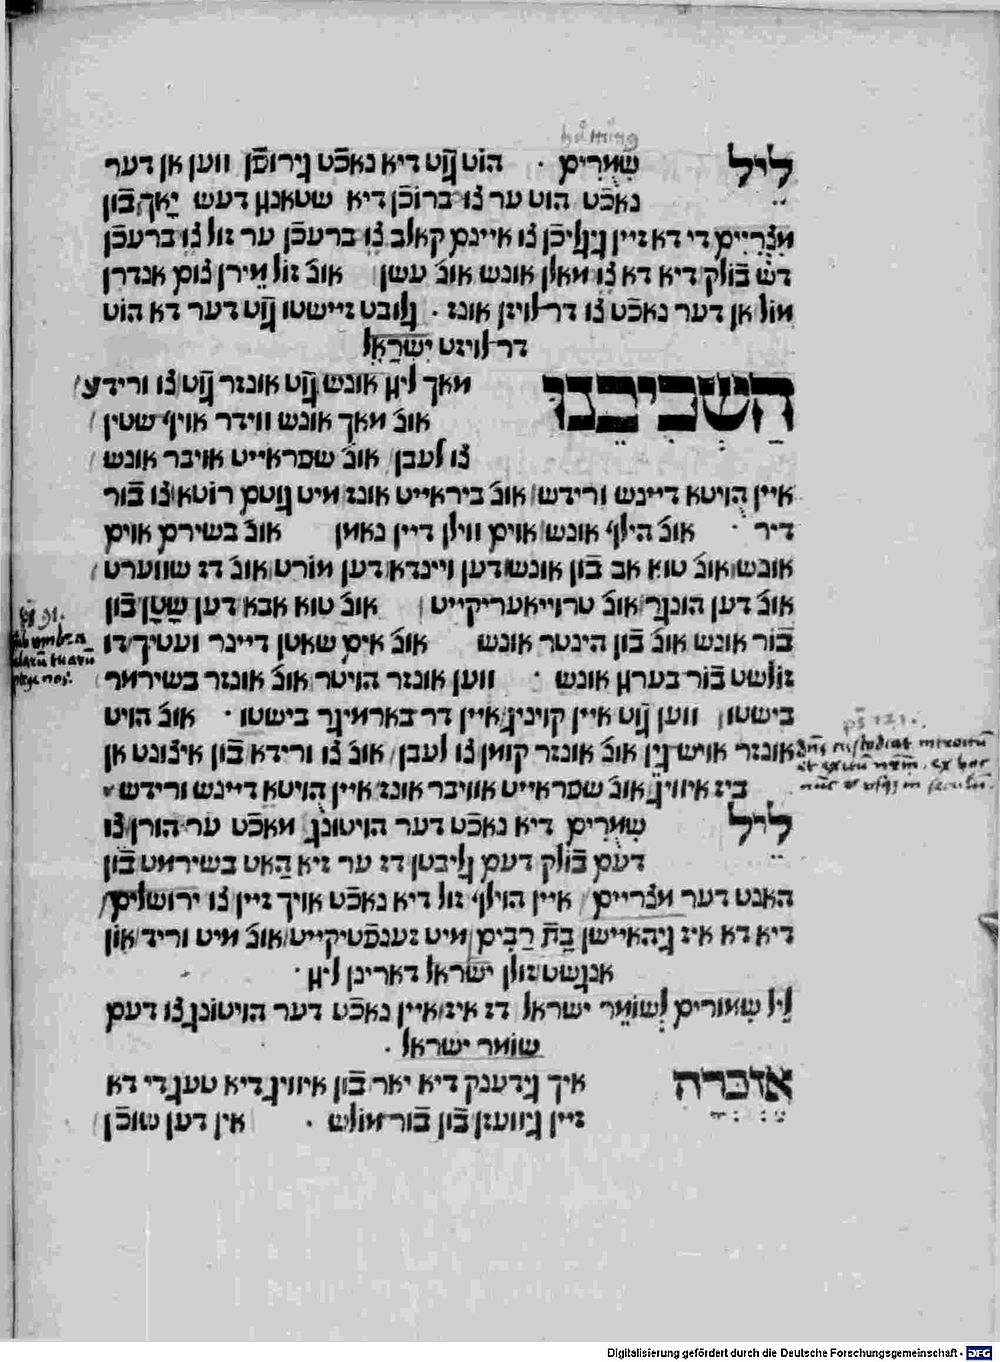 hütting
לֵיל שִמֻרִים · הוֹט גוֹט דיא נאכֿט גירופֿן ווען אן דער
נאכֿט הוט ער צו ברוכֿן דיא שטאנג דעש יָאך בֿון
מִצְרַיִם די דא זיין גיגליכֿן צו איינם קאלב צו ברעכֿן ער זול צו ברעכֿן
דש בֿולק דיא דא צו מאלן אונש אונ׳ עשן אונ׳ זול מֵירן צום אנדרן
מול אן דער נאכֿט צו דר לויזן אונז · גלובט זיישטו גוט דער דא הוט
דר לויזט יִשְרָאֵל
הַשְכִיבֵנוּ מאך ליג אונש גוט אונזר גוט צו ורידע
אונ׳ מאך אונש ווידר אויף שטין
צו לעבן אונ׳ שפראייט אויבר אונש
איין הויטא דיינש ורידש אונ׳ ביראייט אונז מיט גוטם רוטא צו בֿור
דיר · אונ׳ הילף אונש אוים ווילן דיין נאמן אונ׳ בשירם אוים
אונש אונ׳ טוא אב בֿון אונש דען ויינדא דען מורט אונ׳ דז שווערט
אונ׳ דען הונגר אונ׳ טרוייאעריקייט אונ׳ טוא אבא דען שָטָן בֿון
בֿור אונש אונ׳ בֿון הינטר אונש אונ׳ אים שאטן דיינר ועטיך דו
זולשט בֿור בערג אונש · ווען אונזר הויטר אונ׳ אונזר בשירמר
בישטו ווען גוט איין קויניג איין דר בארמיגר בישטו · אונ׳ הויט
אונזרי אויש גין אונ׳ אונזר קומן צו לעבן אונ׳ צו ורידא בֿון איצונט אן
ביז איוויג אונ׳ שפראייט אוויבר אונז איין הויטא דיינש ורידש
לֵיל שִמֻרִים דיא נאכֿט דער הויטונג מאכֿט ער הורן צו
דעם בֿולק דעם גליבטן דז ער זיא הָאט בשירמט בֿון
האנט דער מצריים איין הוילף זול דיא נאכֿט אויך זיין צו ירושלים
דיא דא איז גיהאיישן בַת רַבִים מיט זענפֿטיקייט אונ׳ מיט וריד און
אנגשט זולן ישראל דארינן ליג ·
לֵיל שִמוּרים לְשוֹמֵר ישראל דז איז איין נאכֿט דער הויטונג צו דעם
שומר ישראל ·
אזכרה איך גידענק דיא יאר בֿון איוויג דיא טעג די דא
זיין גיוועזן בֿון בֿור מולש · אין דען שוכֿן
ps 91.
sub umbra
alarū tuarū
ps 121.
dñs custodiat introitū
et exitū
ex hoc
nūc &
in seculū
Digitalisierung gefördert durch die Deutsche Forschungsgemeinschaft - DFG